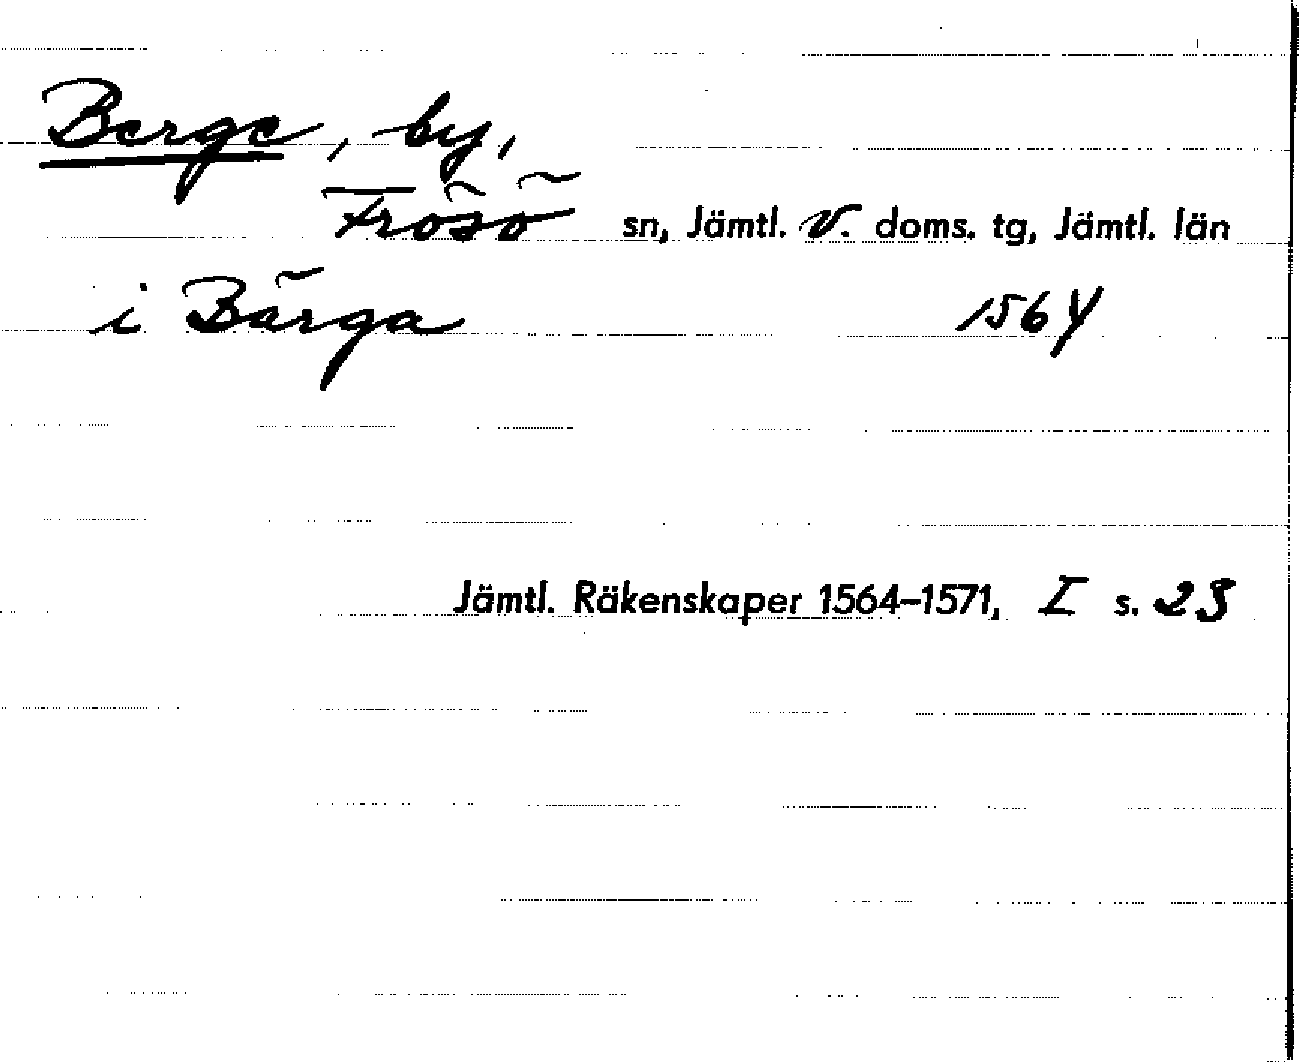 Berge, by,
Frösö sn, Jämtl. v. doms. tg, Jämtl. län
i Bärga 1564
Jämtl. Räkenskaper 1564–1571, I s. 23